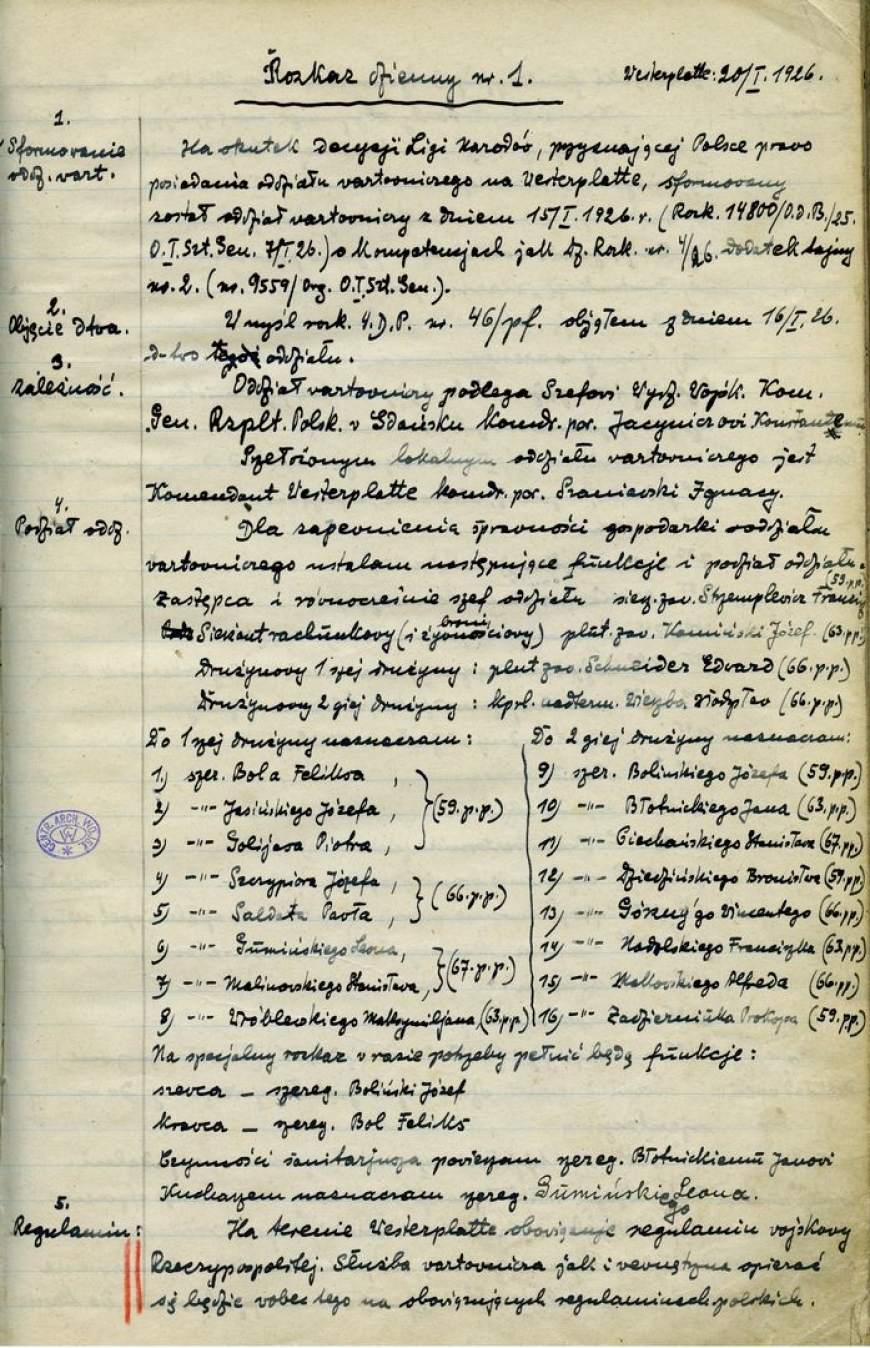 Rozkaz dzienny nr. 1. Westerplatte: 20/I. 1926.
1.
Sformowanie
oddz. wart.
Na skutek decyzji Ligi Narodów, przyznającej Polsce prawo
posiadania oddziału wartowniczego na Westerplatte, sformowany
został oddział wartowniczy z dniem 15/I. 1926. r. (Rozk. 14800/O.d.B./25.
O.I.Szt.Gen. 7/I.26.) o kompetencjach jak Dz. Rozk. nr. 4/26. dodatek tajny
nr. 2. (nr. 9559/Org. O.I.Szt.Gen.).
2.
Objęcie dtwa.
W myśl rozk. 4.D.P. nr. 46/pf. objąłem z dniem 16/I.26.
d-two oddziału.
3.
Zależność.
Oddział wartowniczy podlega Szefowi Wydz. Wojsk. Kom.
Gen. Rzplt. Polsk. w Gdańsku komdr. por. Jacyniczowi
Przełożonym lokalnym oddziału wartowniczego jest
Komendant Westerplatte komdr. por. Szaniewski Ignacy.
4.
Podział oddz.
Dla zapewnienia sprawności gospodarki oddziału
wartowniczego ustalam następujące funkcje i podział oddziału.
Zastępca i równocześnie szef oddziału sierż. zaw. Strzemplewicz (59.p.p.)
Sierżant rachunkowy (i broni żywnościowy) plut. zaw. Kamiński Józef. (63.p.p.)
Drużynowy 1 szej drużyny: plut zaw. Schneider Edward (66.p.p.)
Drużynowy 2 giej drużyny: kprl. nadterm. Wierzba Władysław (66.p.p.)
Do 1 szej drużyny naznaczam:
1) szer. Bola Feliksa,
2) -"- Jasińskiego Józefa, (59.p.p.)
3) -"- Golijasa Piotra,
4) -"- Szczypiora Józefa, (66.p.p.)
5) -"- Saldata Pawła,
6) -"- Gumińskiego Leona, (67.p.p.)
7) -"- Malinowskiego Stanisława,
8) -"- Wróblewskiego Maksymiljana, (63.p.p.)
Do 2 giej drużyny naznaczam:
9) szer. Bolińskiego Józefa (59.p.p.)
10) -"- Błotnickiego Jana (63.p.p.)
11) -"- Ciechańskiego Stanisława (67.p.p.)
12) -"- Dziedzińskiego Bronisława (59.p.p.)
13) -"- Górnego Wincentego (66.p.p.)
14) -"- Nadolskiego Franciszka (63.p.p.)
15) -"- Małkowskiego Alfreda (66.p.p.)
16) -"- Prokopa (59.p.p.)
Na specjalny rozkaz w razie potrzeby pełnić będą funkcje:
szewca — szereg. Boliński Józef
krawca — szereg. Bol Feliks
Czynności sanitarjusza powierzam szereg. Błotnickiemu Janowi
Kucharzem naznaczam szereg. Gumińskiego Leona.
5.
Regulamin:
Na terenie Westerplatte obowiązuje regulamin wojskowy
Rzeczypospolitej. Służba wartownicza jak i wewnętrzna opierać
się będzie wobec tego na obowiązujących regulaminach polskich.
CENTR. ARCH. WOJSK.